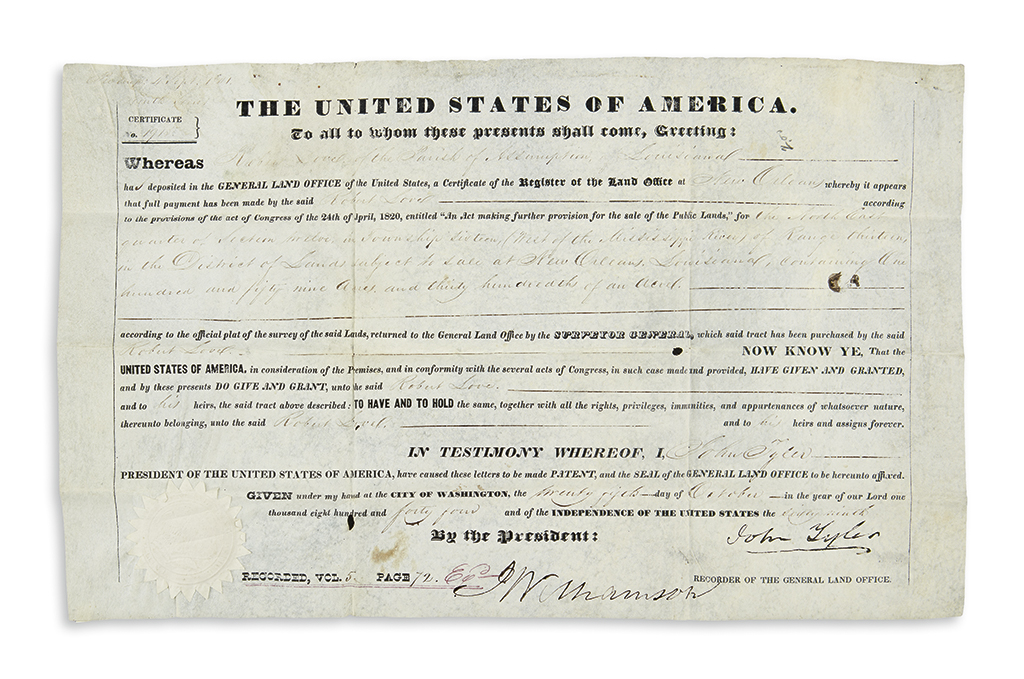 THE UNITED STATES OF AMERICA.
CERTIFICATE
No.
To all to whom these presents shall come, Greeting:
Whereas Robert Love, of the Parish of Assumption, Louisiana
ha deposited in the GENERAL LAND OFFICE of the United States, a Certificate of the Register of the Land Office at New Orleans whereby it appears
that full payment has been made by the said Robert Love according
to the provisions of the act of Congress of the 24th of April, 1820, entitled "An Act making further provision for the sale of the Public Lands," for the North East
quarter of Section twelve, in Township Sixteen, (West of the Mississippi River) of Range thirteen,
in the District of Lands subject to sale at New Orleans, Louisiana, containing One
hundred and fifty nine Acres, and thirty hundredths of an Acre.
according to the official plat of the survey of the said Lands, returned to the General Land Office by the SURVEYOR GENERAL, which said tract has been purchased by the said
Robert Love. NOW KNOW YE, That the
UNITED STATES OF AMERICA, in consideration of the Premises, and in conformity with the several acts of Congress, in such case made and provided, HAVE GIVEN AND GRANTED,
and by these presents DO GIVE AND GRANT, unto the said Robert Love.
and to his heirs, the said tract above described: TO HAVE AND TO HOLD the same, together with all the rights, privileges, immunities, and appurtenances of whatsoever nature,
thereunto belonging, unto the said Robert Love. and to his heirs and assigns forever.
IN TESTIMONY WHEREOF, I, John Tyler
PRESIDENT OF THE UNITED STATES OF AMERICA, have caused these letters to be made PATENT, and the SEAL of the GENERAL LAND OFFICE to be hereunto affixed.
GIVEN under my hand at the CITY OF WASHINGTON, the day of October in the year of our Lord one
thousand eight hundred and forty four and of the INDEPENDENCE OF THE UNITED STATES the sixty ninth
By the President: John Tyler
RECORDED, VOL. 5. PAGE 72. RECORDER OF THE GENERAL LAND OFFICE.